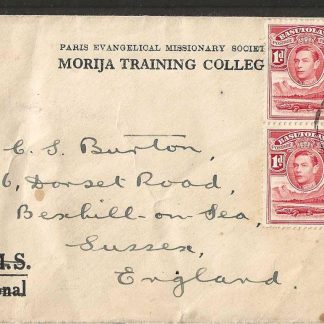 PARIS EVANGELICAL MISSIONARY SOCIET
MORIJA TRAINING COLLEG
BASUTOLA
1d
BASUTOLA
1d
C. S. Burton,
6, Dorset Road,
Bexhill-on-Sea,
Sussex,
England.
.S.
onal